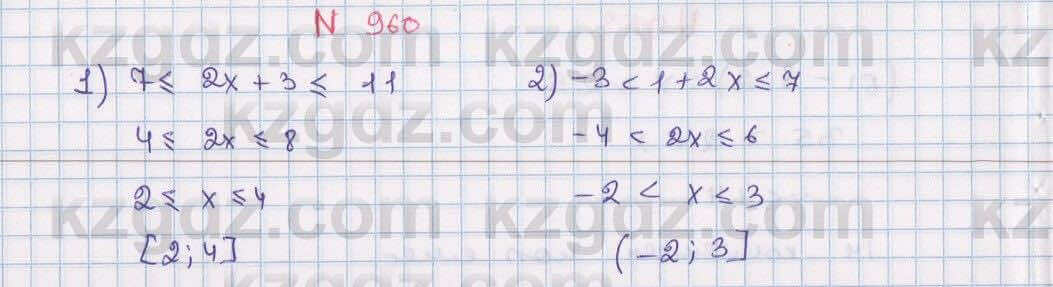 N 960
1) 7 ≤ 2x + 3 ≤ 11
4 ≤ 2x ≤ 8
2 ≤ x ≤ 4
[2; 4]
2) -3 < 1 + 2x ≤ 7
-4 < 2x ≤ 6
-2 < x ≤ 3
(-2; 3]
kzgdz.com
kzgdz.com
kz
kzgdz.com
kzgdz.com
kzgdz.com
kz